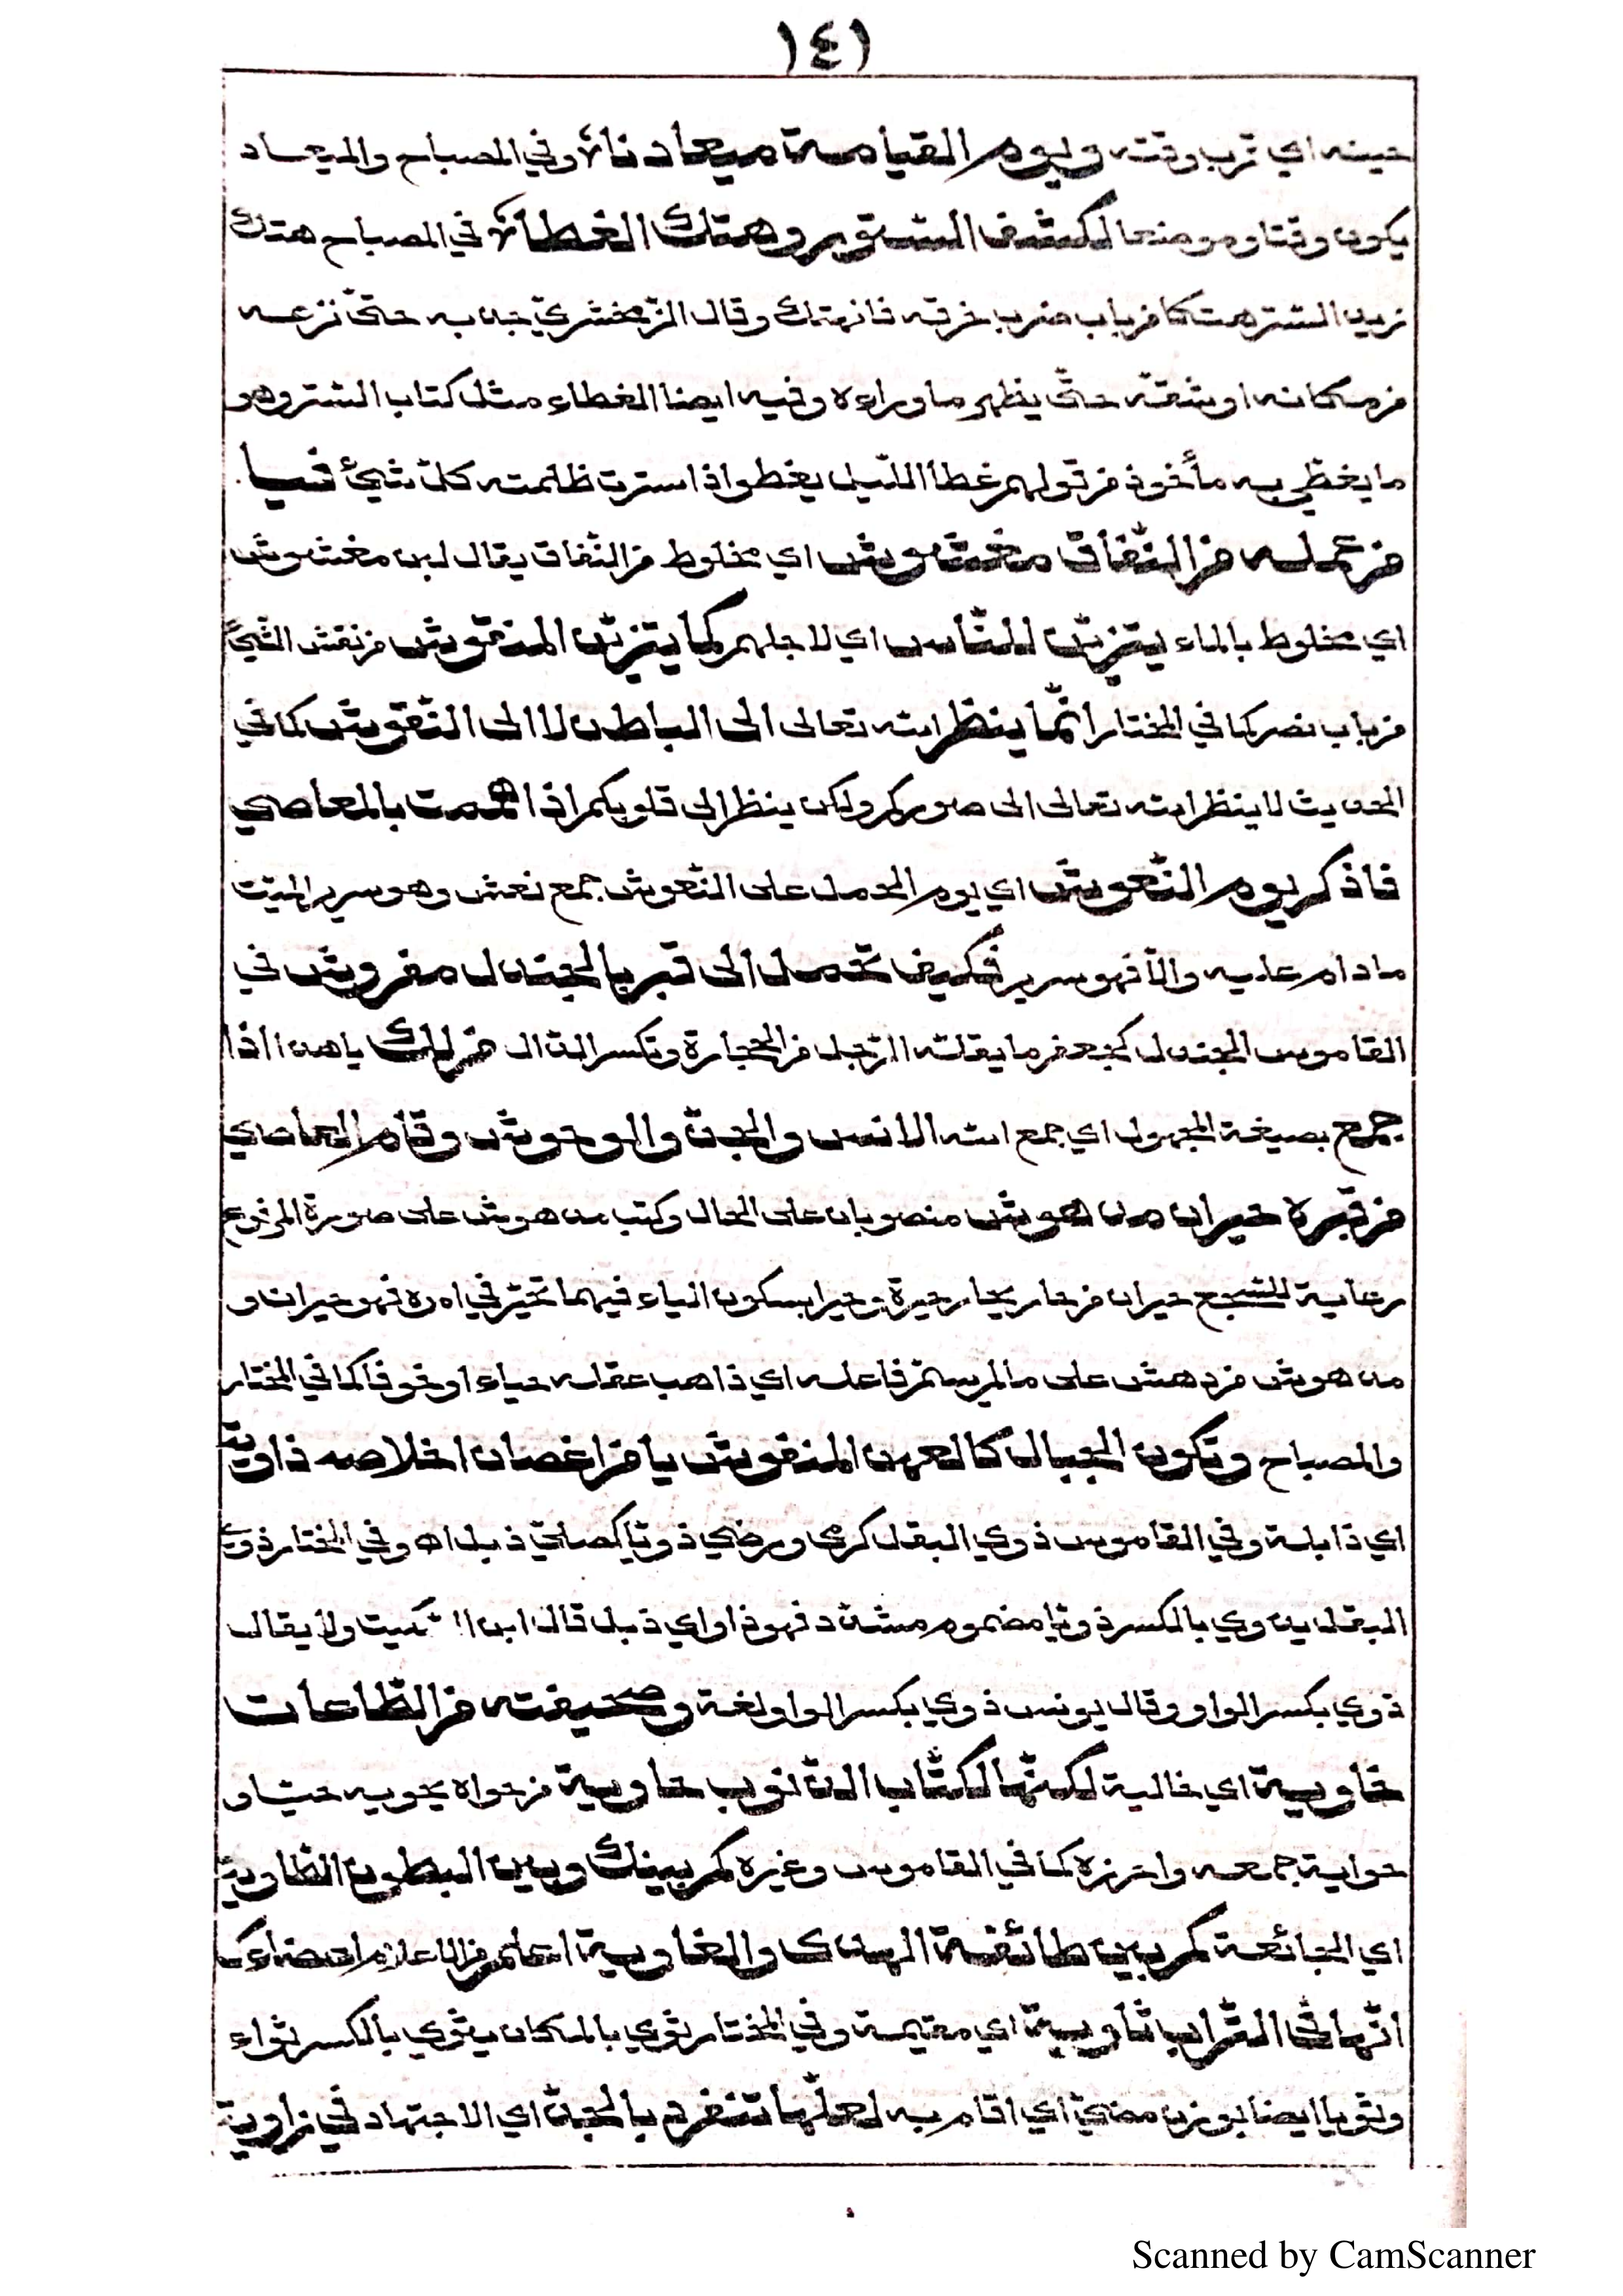 ١٤١
حينه اي قرب وقته ويوم القيامة ميعادنا وفي المصباح والميعاد
يكون وقتا وموضعا لكشف الستور وهتك الغطاء في المصباح هتك
زيد الستر هتكا من باب ضرب خرقه فانهتك وقال الزمخشري جذبه حتى نزعه
من مكانه او شقه حتى يظهر ما وراءه وفيه ايضا الغطاء مثل كتاب الستر وهو
ما يغطي به مأخوذ من قولهم غطا الليل يغطوا اذا سترت ظلمته كل شيئ فيا
من عمله من النفاق مغشوش اي مخلوط من النفاق يقال لبن مغشوش
اي مخلوط بالماء يتزين للناس اي لاجلهم كما يتزين المنقوش من نقش الشيئ
من باب نصر كما في المختار انما ينظر الله تعالى الى الباطن لا الى النقوش كما في
الحديث لا ينظر الله تعالى الى صوركم ولكن ينظر الى قلوبكم اذا هممت بالمعاصي
فاذكر يوم النعوش اي يوم الحمل على النعوش جمع نعش وهو سرير الميت
ما دام عليه والا فهو سرير فكيف تحمل الى قبر بالجندل مفروش في
القاموس الجندل كجعفر ما يقله الرجل من الحجارة وتكسر الدال من لك يا هذا اذا
جمع بصيغة المجهول اي جمع الله الانس والجن والوحوش وقام العاصي
من قبره حيران مدهوش منصوبان على الحال وكتب مدهوش على صورة المرفوع
رعاية للسجع حيران من حار يحار حيرة وحيرا بسكون الياء فيهما تحير في امره فهو حيران و
مدهوش من دهش على ما لم يسم فاعله اي ذاهب عقله حياء او خوفا كما في المختار
والمصباح وتكون الجبال كالعهن المنفوش يا من اغصان اخلاصه ذاوية
اي ذابلة وفي القاموس ذوي البقل كرمى ورضي ذويا كصلي ذبل اه وفي المختار ذوى
البقل يذوي بالكسر ذويا مضموم مشدد فهو ذاو اي ذبل قال ابن السكيت ولا يقال
ذوي بكسر الواو وقال يونس ذوي بكسر الواو لغة وصحيفته من الطاعات
خاوية اي خالية لكنها لكتاب الذنوب حاوية من حواه يحويه حيا و
حواية جمعه واحرزه كما في القاموس وغيره كم بينك وبين البطون الطاوية
اي الجائعة كم بين طائفة الهدى والغاوية اعلم من الاعلام اعضاءك
انها في التراب ثاوية اي مقيمة وفي المختار ثوي بالمكان يثوي بالكسر ثواء
وثويا ايضا بوزن مضي اي اقام به لعلها تنفرد بالجد اي الاجتهاد في زاوية
Scanned by CamScanner